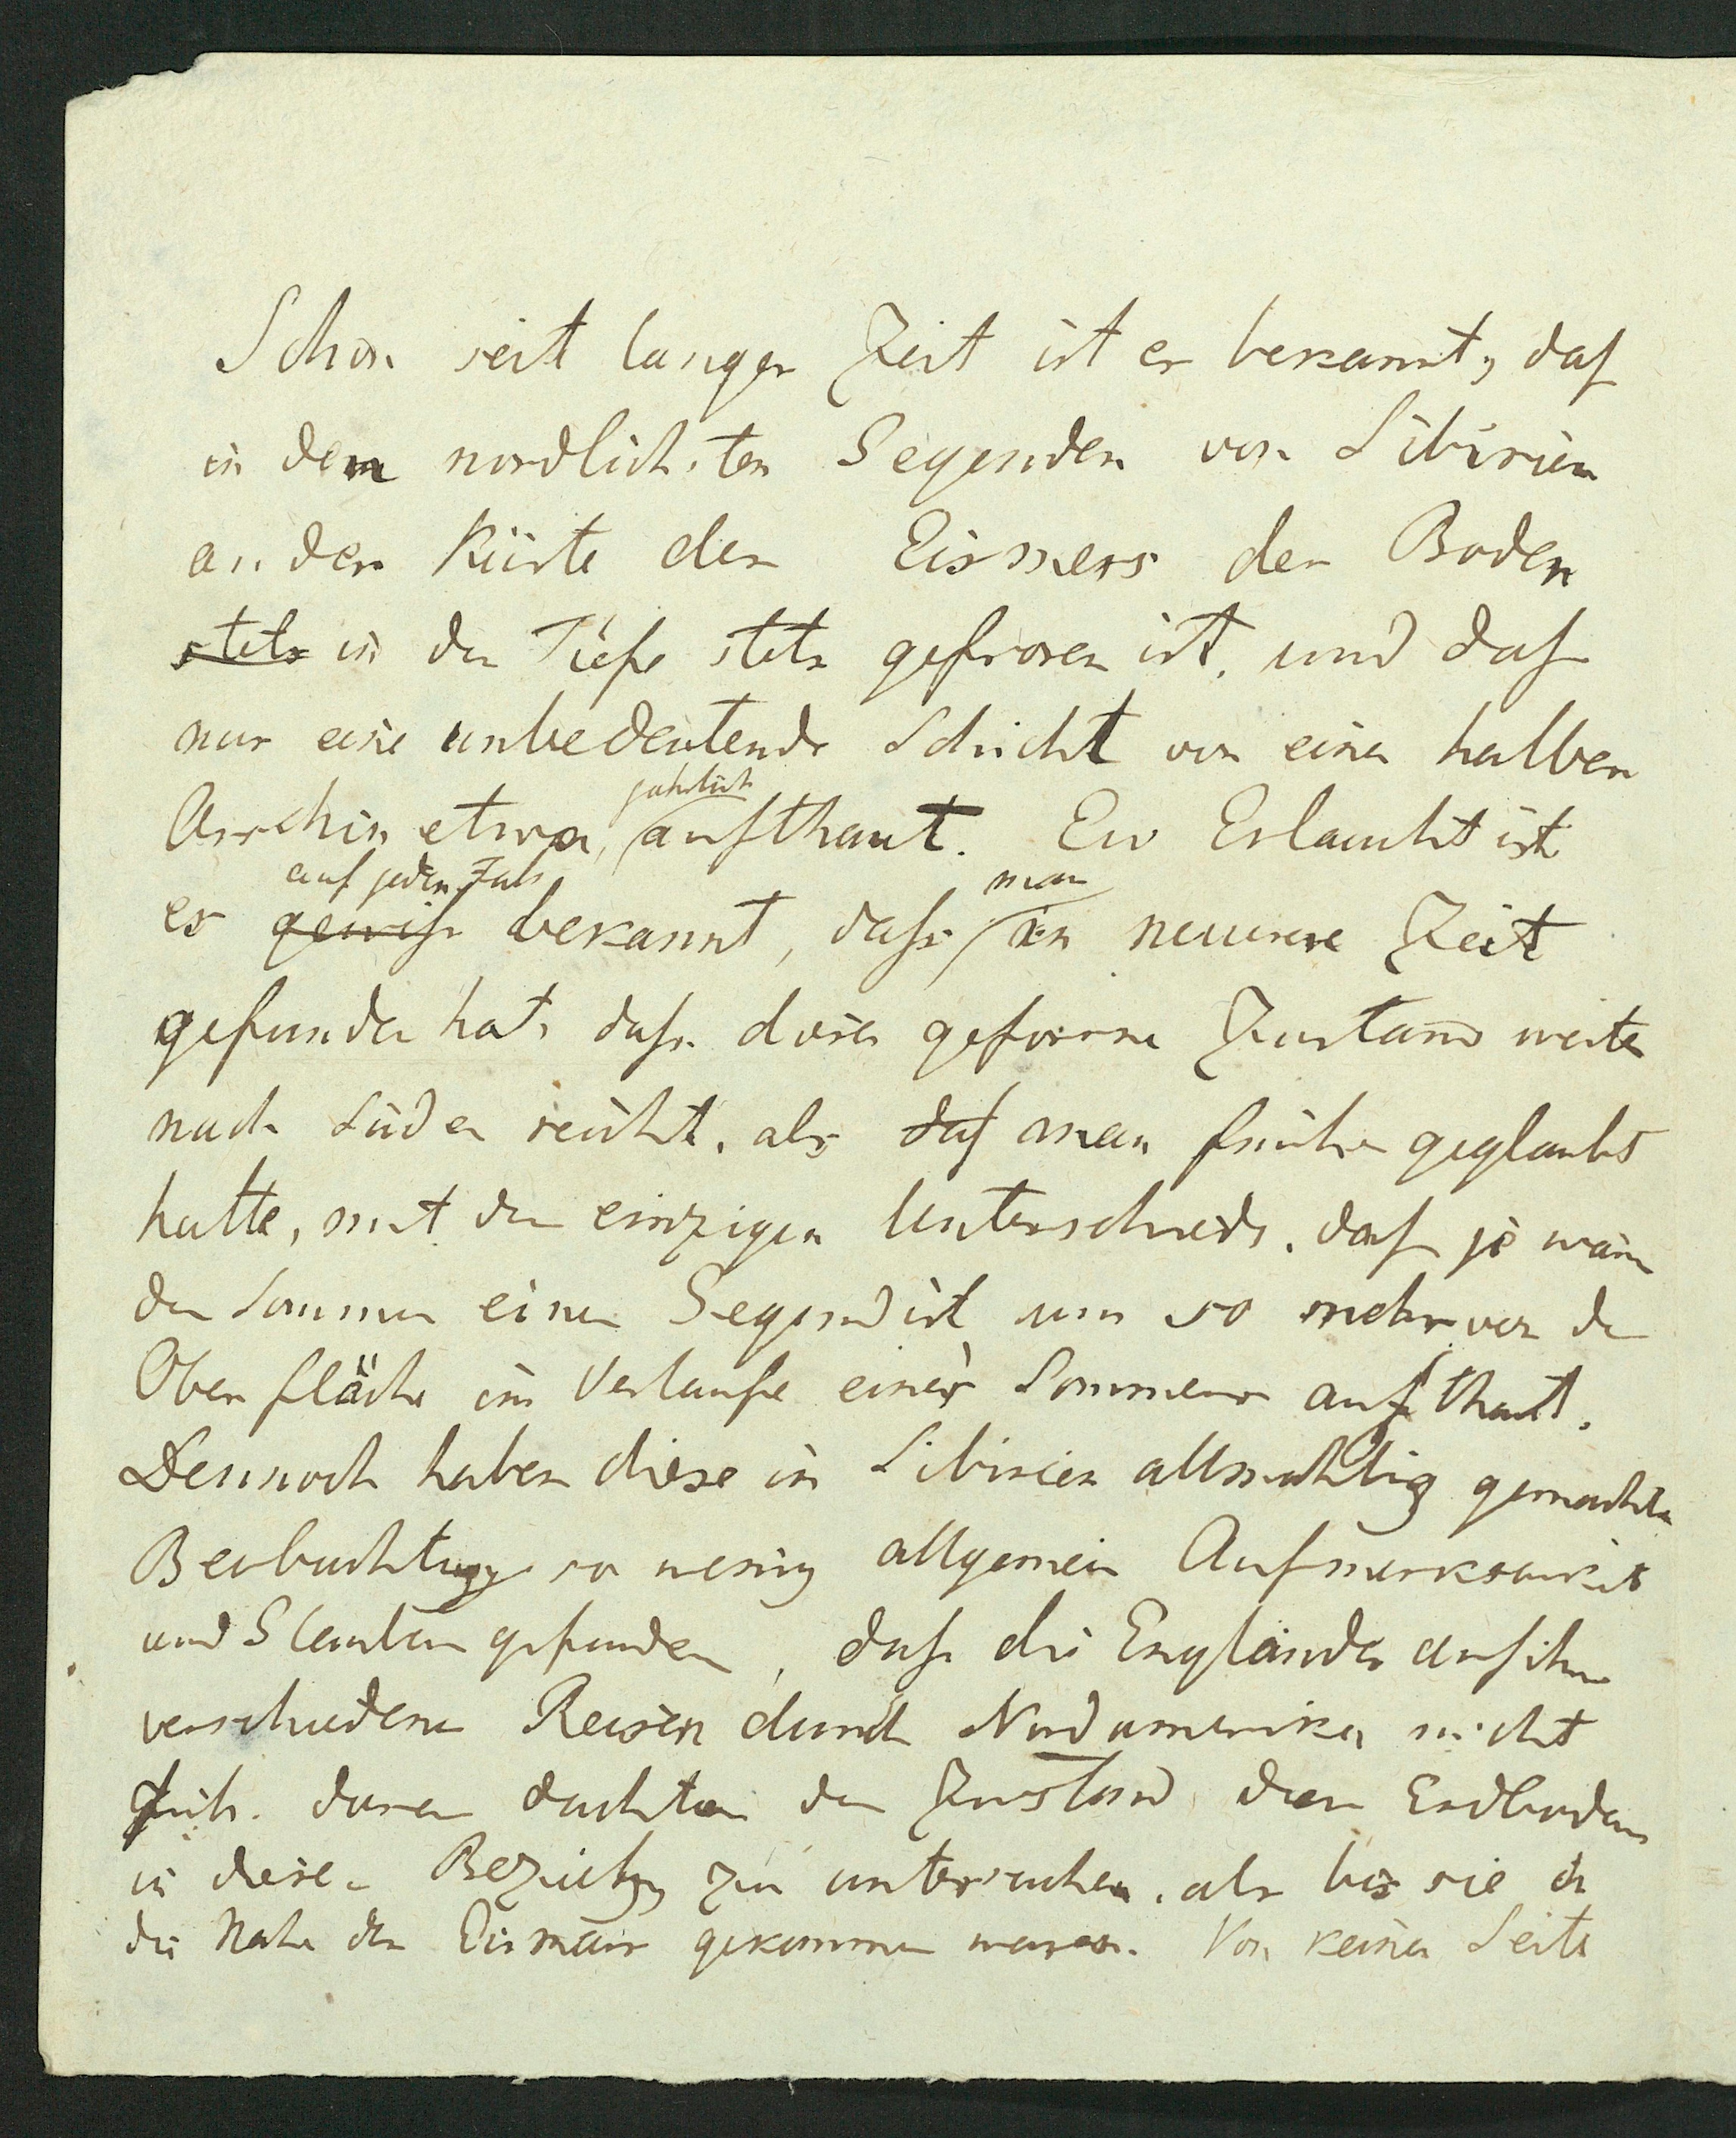 Schon seit langer Zeit ist es bekannt, daß
in den nordlichsten Gegenden von Sibirien
an der Küste des Eismers der Boden
stets in der Tiefe stets gefroren ist, und daß
nur eine unbedeutende Schicht von einer halben
jahrlich
Arschin etwa, aufthaut. Ew Erlaucht ist
auf jeden Fall man
es gewiß bekannt, daß in neuerer Zeit
gefunden hat, daß dieser gefrorene Zustand weiter
nach Süden reicht, als daß man früher geglaubt
hatte, mit dem einzigen Unterschiede, daß je wärmer
der Sommer einer Gegend ist um so mehr von der
Oberfläche im Verlaufe eines Sommers aufthaut.
Dennoch haben diese in Sibirien allmahlig gemachten
Beobachtungen so wenig allgemein Aufmerksamkeit
und Glauben gefunden, daß die Engländer auf ihren
verschiedenen Reisen durch Nordamerika nicht
früh. daran dachten den Zustand des Erdbodens
in dieser Beziehung zu untersuchen, als bis sie in
die Nähe des Eismeers gekommen waren. Von keiner Seite